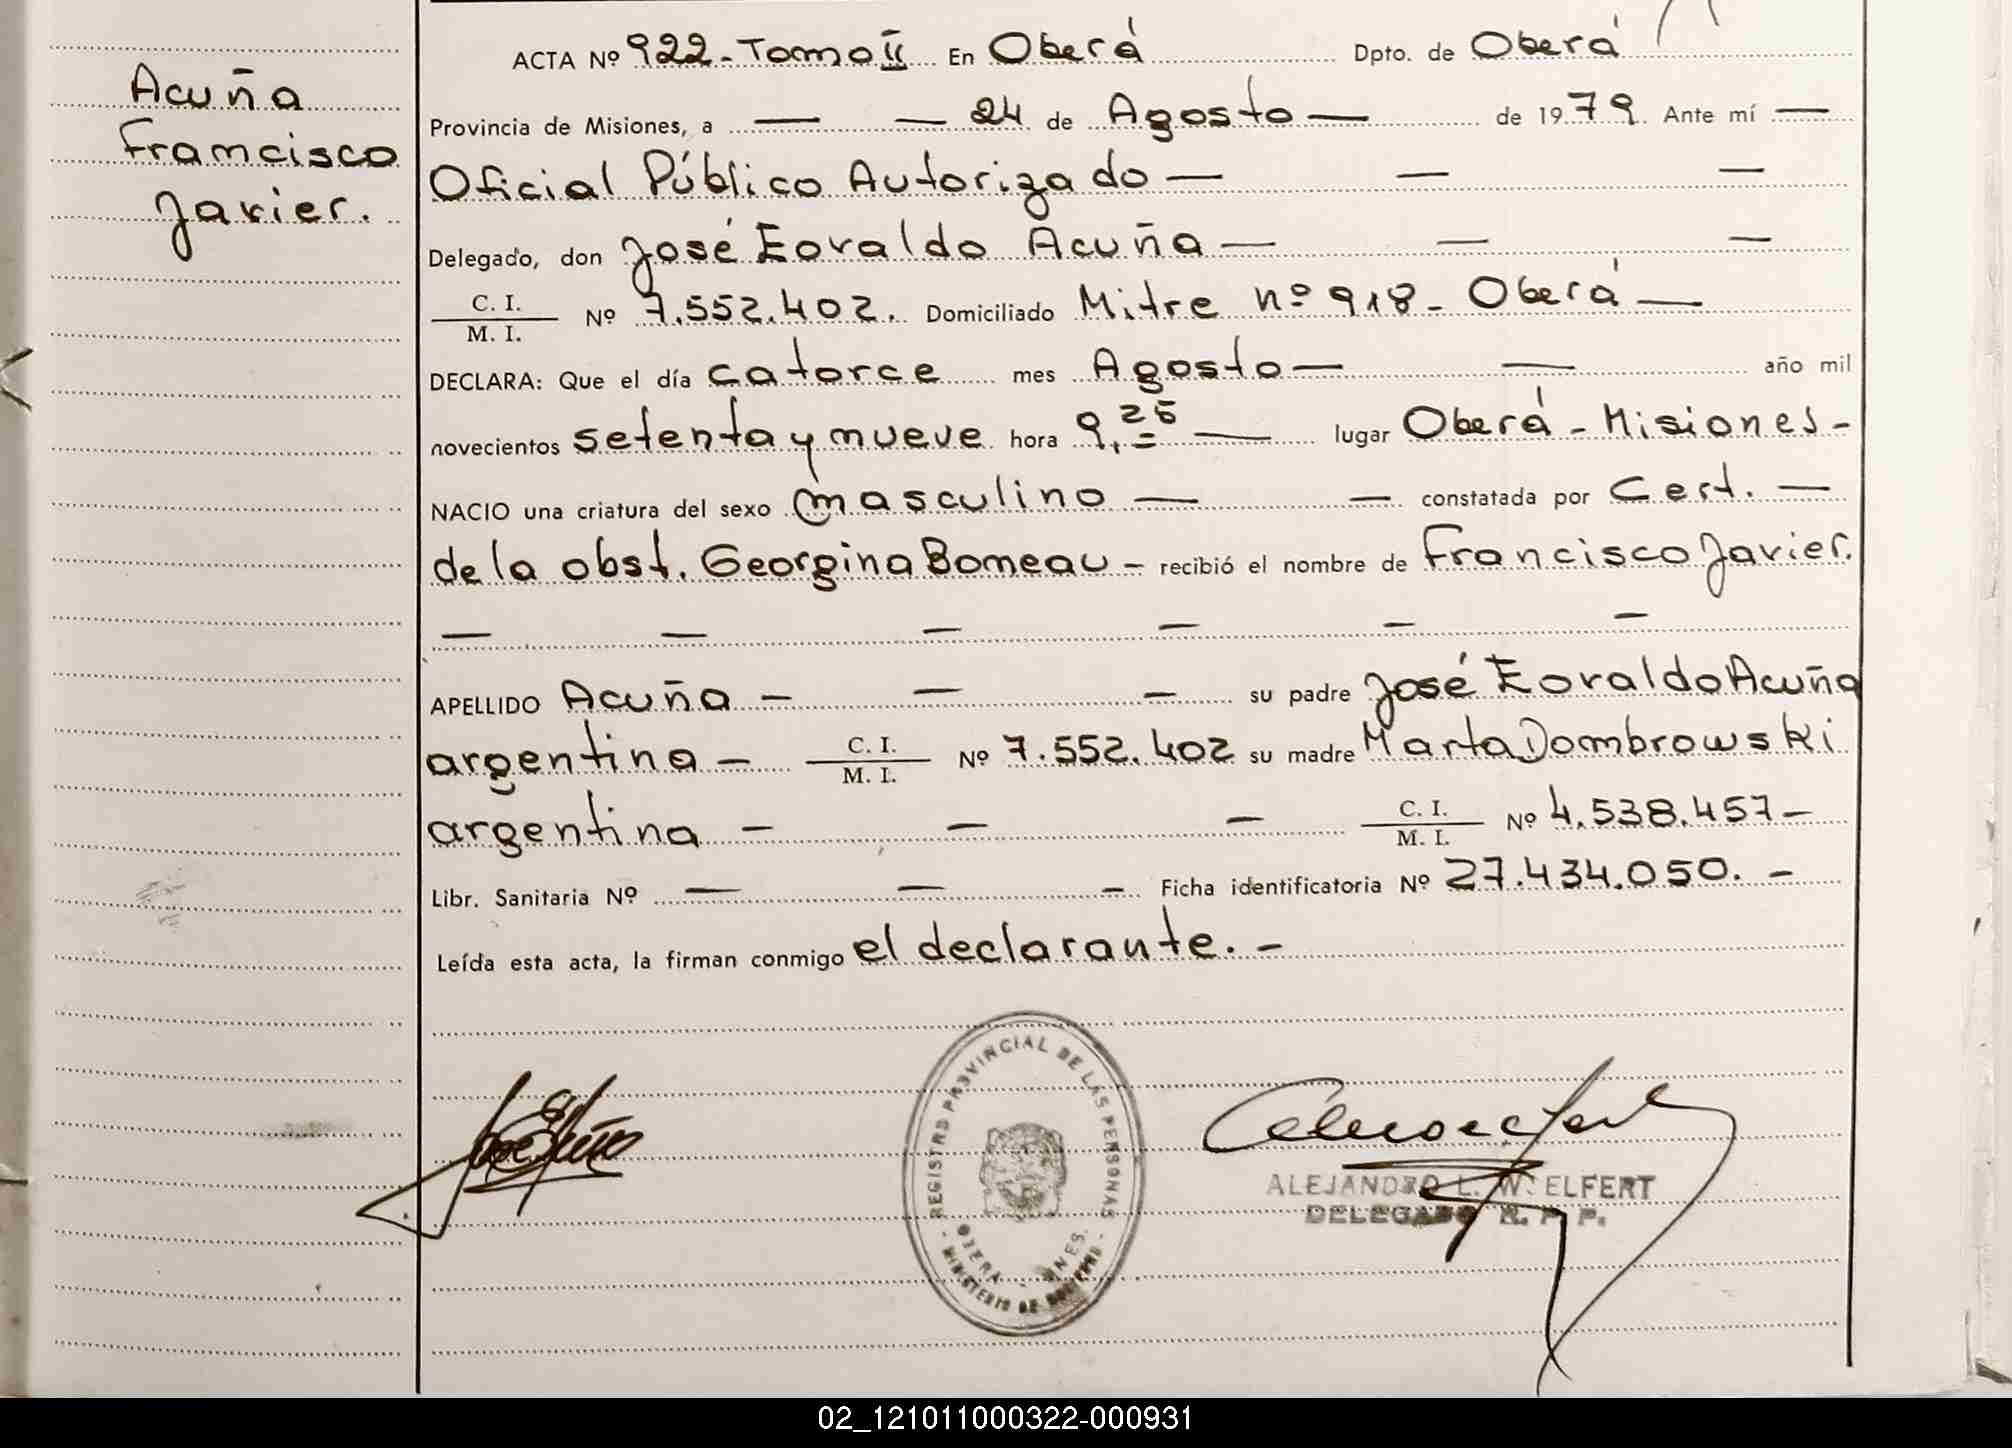 Acuña
Francisco
Javier.
ACTA Nº 922 - Tomo II En Oberá Dpto. de Oberá
Provincia de Misiones, a — — 24 de Agosto — de 1979. Ante mí —
Oficial Público Autorizado — — —
Delegado, don José Eovaldo Acuña — — —
C. I.
M. I.
Nº 7.552.402. Domiciliado Mitre nº 918 - Oberá —
DECLARA: Que el día catorce mes Agosto — — año mil
novecientos setenta y nueve hora 9,25 — lugar Oberá - Misiones -
NACIO una criatura del sexo masculino — — constatada por Cert. —
de la obst. Georgina Bomeau - recibió el nombre de Francisco Javier.
— — — — — —
APELLIDO Acuña - — — su padre José Eovaldo Acuña
argentina - C. I. / M. I. Nº 7.552.402 su madre Marta Dombrowski
argentina - — — C. I. / M. I. Nº 4.538.457 -
Libr. Sanitaria Nº — — — Ficha identificatoria Nº 27.434.050. -
Leída esta acta, la firman conmigo el declarante. -
REGISTRO PROVINCIAL DE LAS PERSONAS
OBERA - MNES.
- MINISTERIO DE GOBIERNO -
ALEJANDRO L. W. ELFERT
DELEGADO R. P. P.
02_121011000322-000931